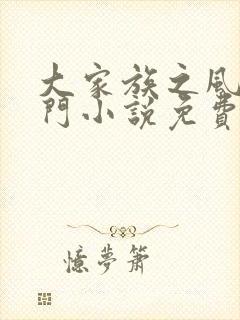 大家族之風
門小説免費
憶夢簫